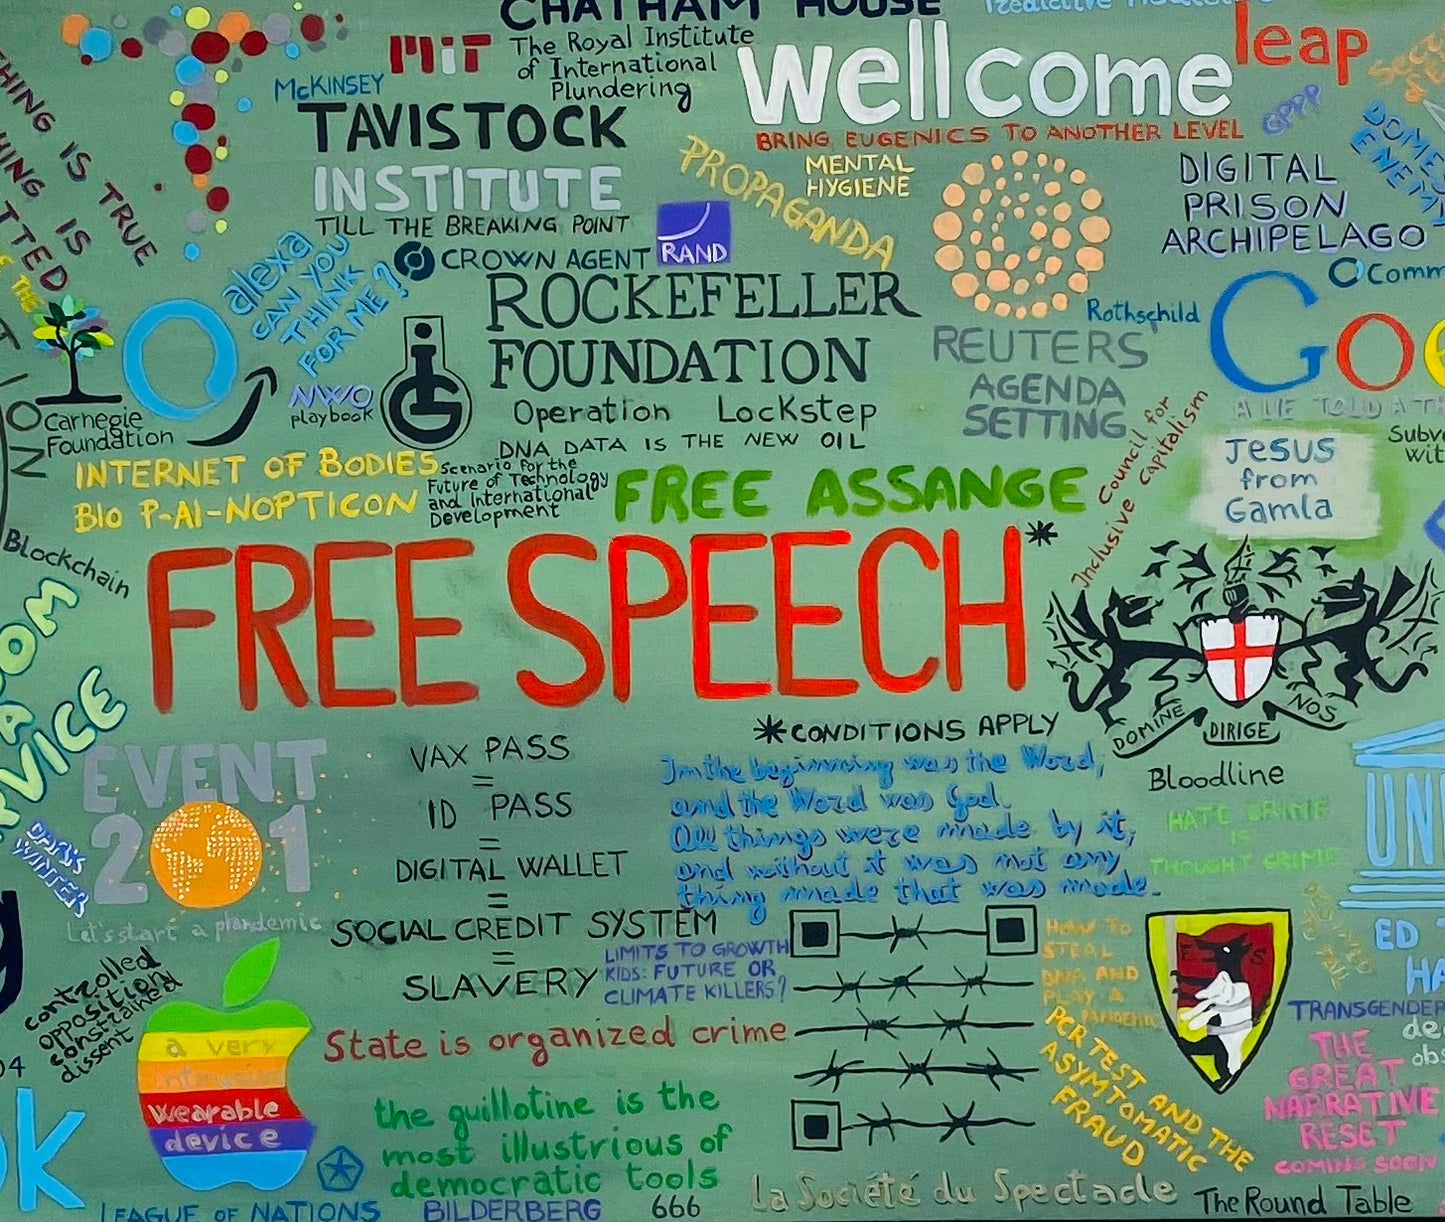 CHATHAM HOUSE
MIT
The Royal Institute
of International
Plundering
McKINSEY
TAVISTOCK
INSTITUTE
TILL THE BREAKING POINT
wellcome
BRING EUGENICS TO ANOTHER LEVEL
leap
GPPP
MENTAL
HYGIENE
PROPAGANDA
DIGITAL
PRISON
ARCHIPELAGO
THING IS TRUE
HING IS
TTED
alexa
CAN YOU
THINK
FOR ME?
CROWN AGENT
RAND
ROCKEFELLER
FOUNDATION
Operation Lockstep
DNA DATA IS THE NEW OIL
Rothschild
REUTERS
AGENDA
SETTING
Comm
Goo
A LIE TOLD A TH
Carnegie
Foundation
NWO
playbook
iG
INTERNET OF BODIES
BIO P-AI-NOPTICON
Scenario for the
Future of Technology
and International
Development
FREE ASSANGE
Council for
Inclusive Capitalism
Jesus
from
Gamla
Subv
wit
Blockchain
FREE SPEECH*
DOMINE DIRIGE NOS
*CONDITIONS APPLY
Bloodline
OM
A
RVICE
EVENT
201
Let's start a plandemic
VAX PASS
=
ID PASS
=
DIGITAL WALLET
=
SOCIAL CREDIT SYSTEM
=
SLAVERY
In the beginning was the Word,
and the Word was God.
All things were made by it,
and without it was not any
thing made that was made.
HATE CRIME
IS
THOUGHT CRIME
UN
WINTER
LIMITS TO GROWTH
KIDS: FUTURE OR
CLIMATE KILLERS?
HOW TO
STEAL
DNA AND
PLAY A
PANDEMIC
ES
ED
HA
TRANSGENDER
de
obs
controlled
opposition
constrained
dissent
a very
intrusive
wearable
device
State is organized crime
the guillotine is the
most illustrious of
democratic tools
PCR TEST AND THE
ASYMTOMATIC
FRAUD
THE
GREAT
NARRATIVE
RESET
COMING SOON
k
LEAGUE OF NATIONS
BILDERBERG
666
La Société du Spectacle
The Round Table